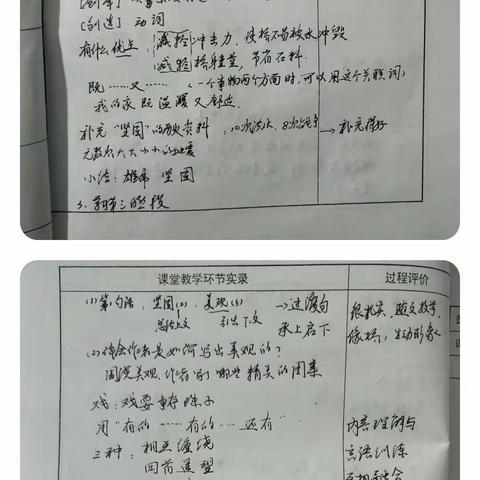 [创造] 动词
有什么优点: 减轻冲击力,使桥不易被水冲毁
减轻桥身重量,节省石料.
既……又……(一个事物两个方面时,可以用这个关联词)
我的家既温暖又舒适.
补充"坚固"的历史资料: 10次洪水,8次战争 → 补充得好
无数次大大小小的地震
小结: 雄伟 坚固
3. 第三段
课堂教学环节实录 过程评价
(1) 第1句话: 坚固(2) 美观(3) → 过渡句
总结上文 引出下文 承上启下
很扎实,随文教学,
(2) 体会作者是如何写出美观的?
围绕美观,作者写了哪些精美的图案
戏: 戏耍
用"有的……有的……还有"
三种: 相互缠绕
回首遥望
内容理解与
言语训练